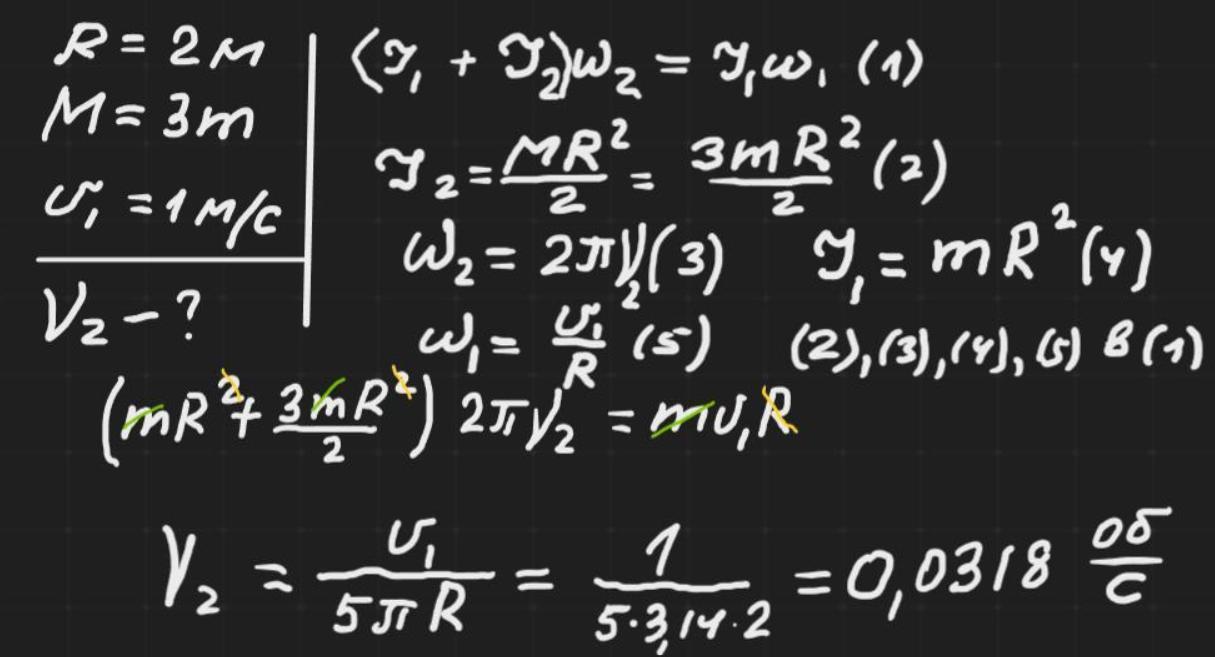 R = 2м
M = 3m
υ₁ = 1м/с
ν₂ - ?
(J₁ + J₂)ω₂ = J₁ω₁ (1)
J₂ = MR²/2 = 3mR²/2 (2)
ω₂ = 2πν₂ (3) J₁ = mR² (4)
ω₁ = υ₁/R (5) (2), (3), (4), (5) в (1)
(mR² + 3mR²/2) 2πν₂ = mυ₁R
ν₂ = υ₁/5πR = 1/5·3,14·2 = 0,0318 об/с